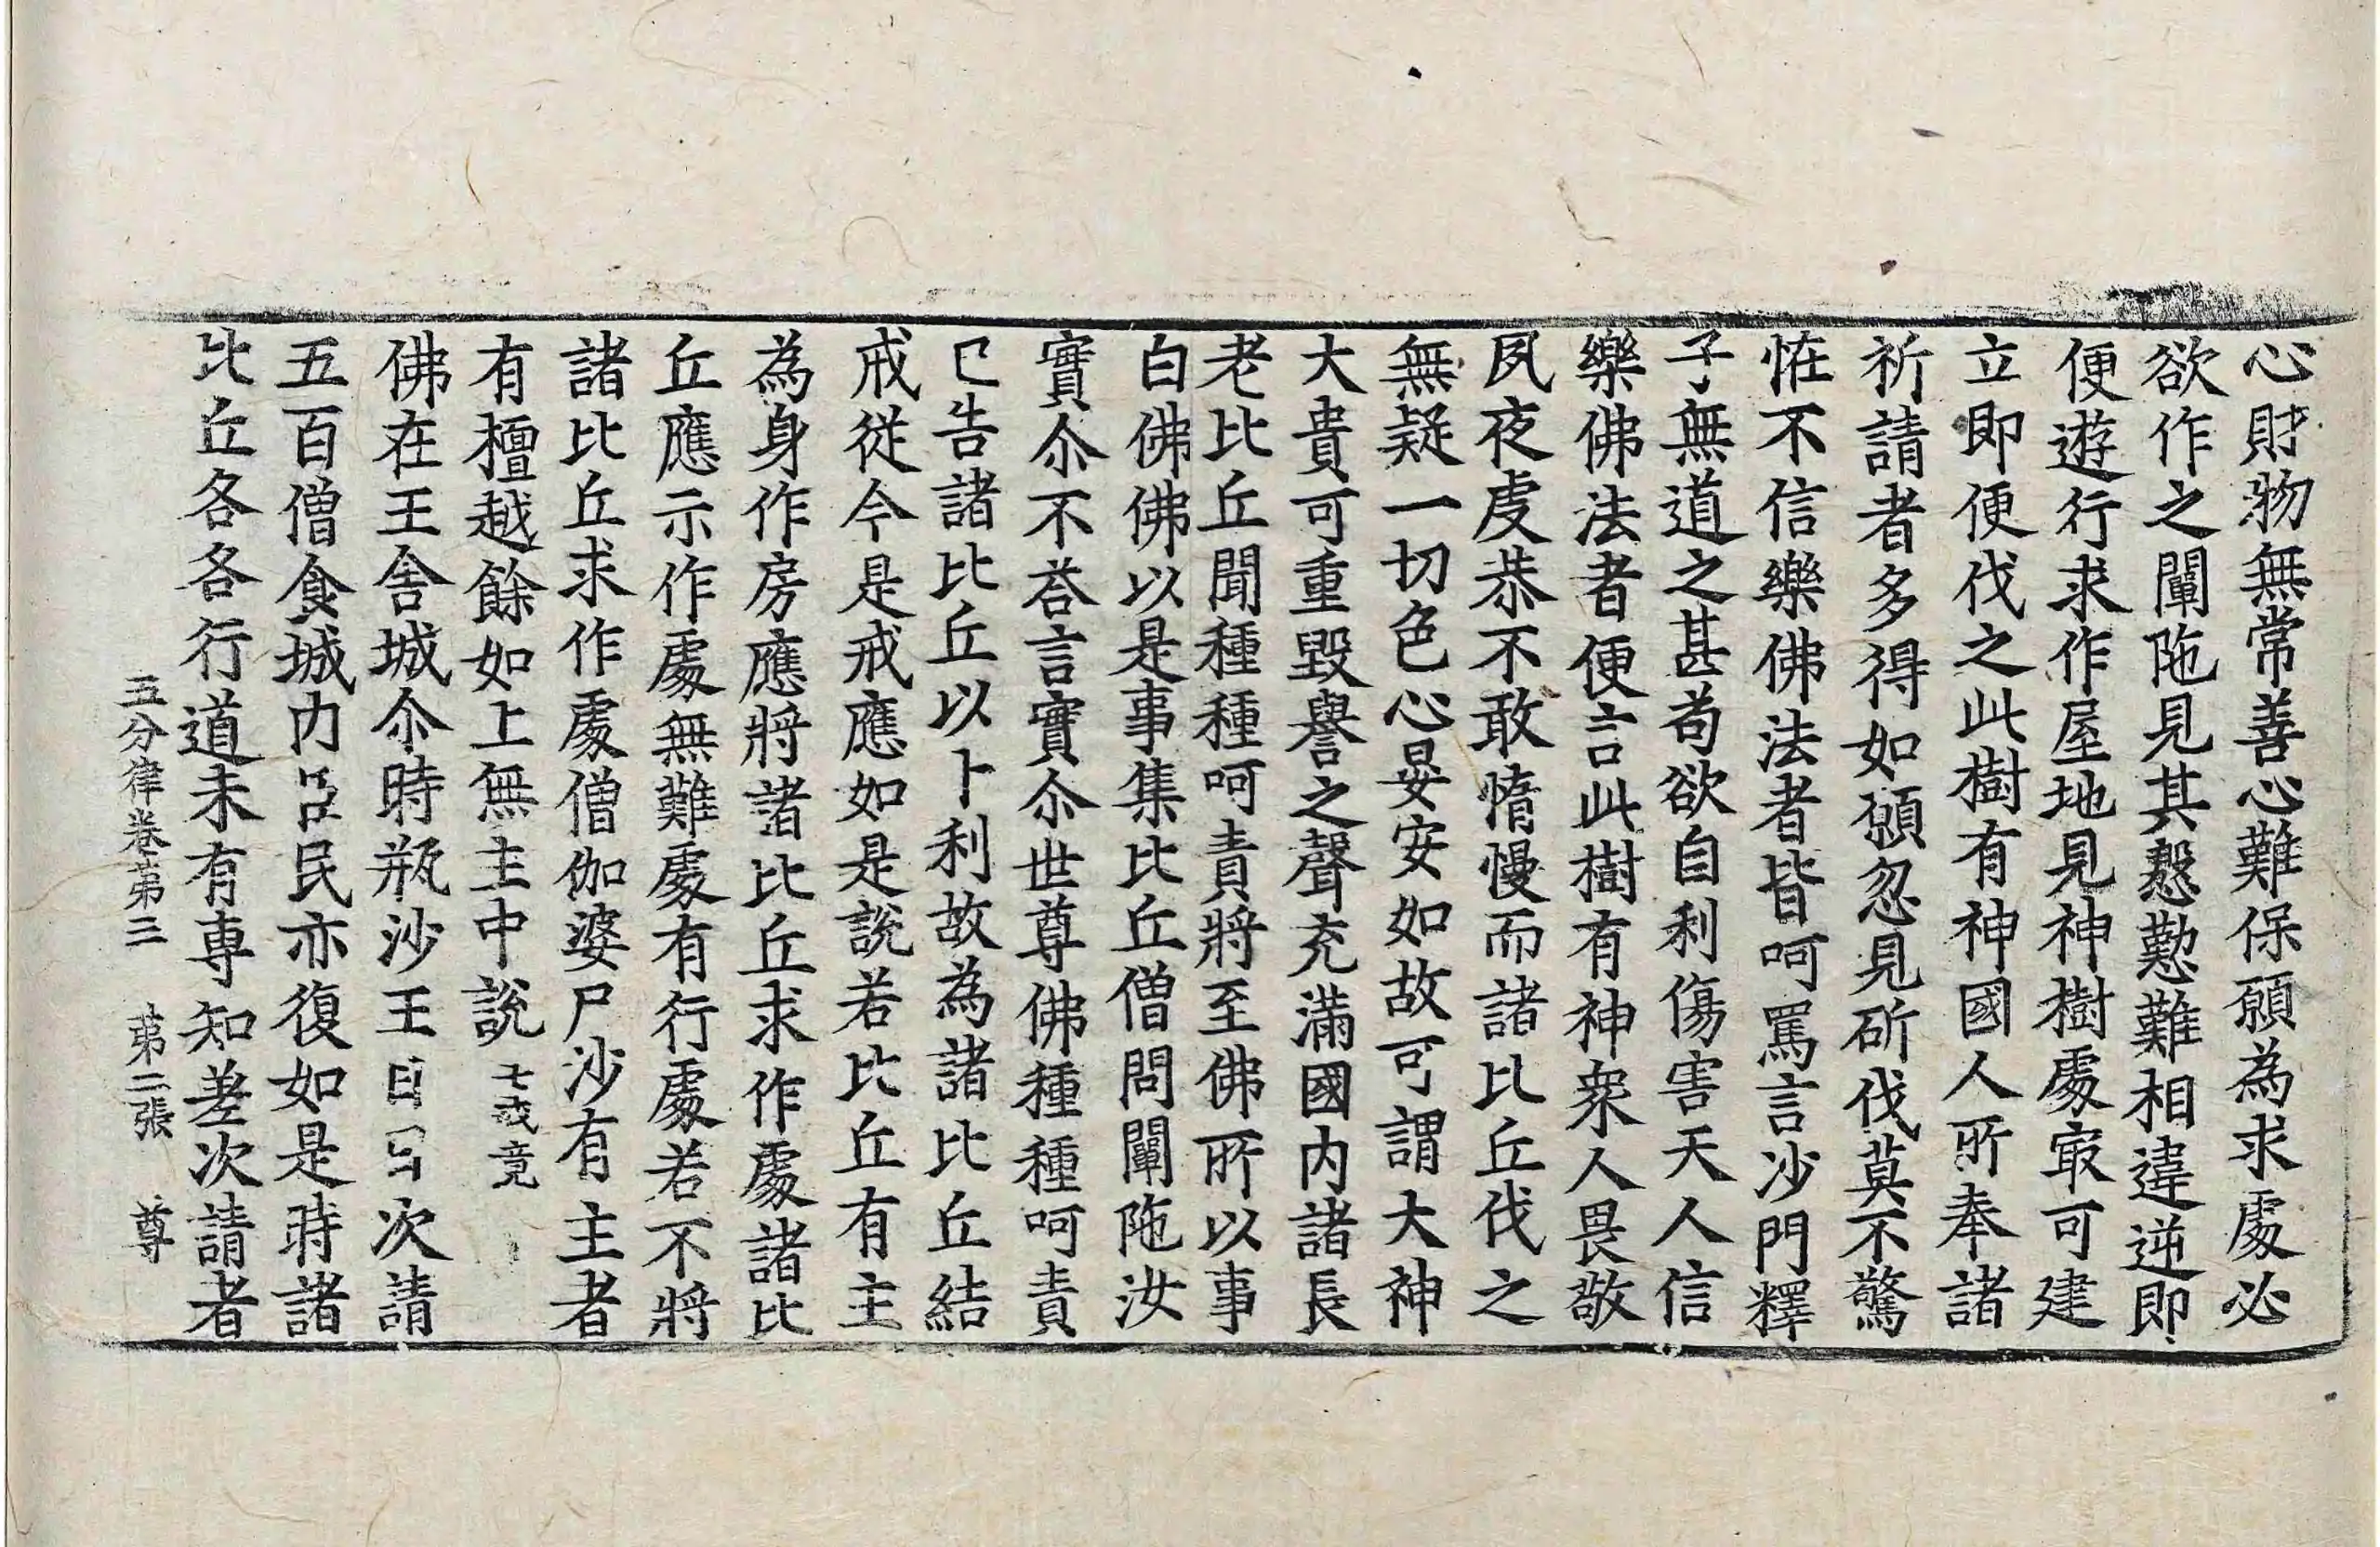 心財物無常善心難保願為求處必
欲作之闡陁見其慇懃難相違逆即
便遊行求作屋地見神樹處㝡可建
立即便伐之此樹有神國人所奉諸
祈請者多得如願忽見斫伐莫不驚
恠不信樂佛法者皆呵罵言沙門釋
子無道之甚苟欲自利傷害天人信
樂佛法者便言此樹有神衆人畏敬
夙夜虔恭不敢惰慢而諸比丘伐之
無疑一切色心晏安如故可謂大神
大貴可重毀譽之聲充滿國內諸長
老比丘聞種種呵責將至佛所以事
白佛佛以是事集比丘僧問闡陁汝
實尒不荅言實尒世尊佛種種呵責
已告諸比丘以十利故為諸比丘結
戒從今是戒應如是說若比丘有主
為身作房應將諸比丘求作處諸比
丘應示作處無難處有行處若不將
諸比丘求作處僧伽婆尸沙有主者
有檀越餘如上無主中說 七戒竟
佛在王舍城尒時瓶沙王日日次請
五百僧食城內臣民亦復如是時諸
比丘各各行道未有專知差次請者
五分律卷第三 第二張 尊